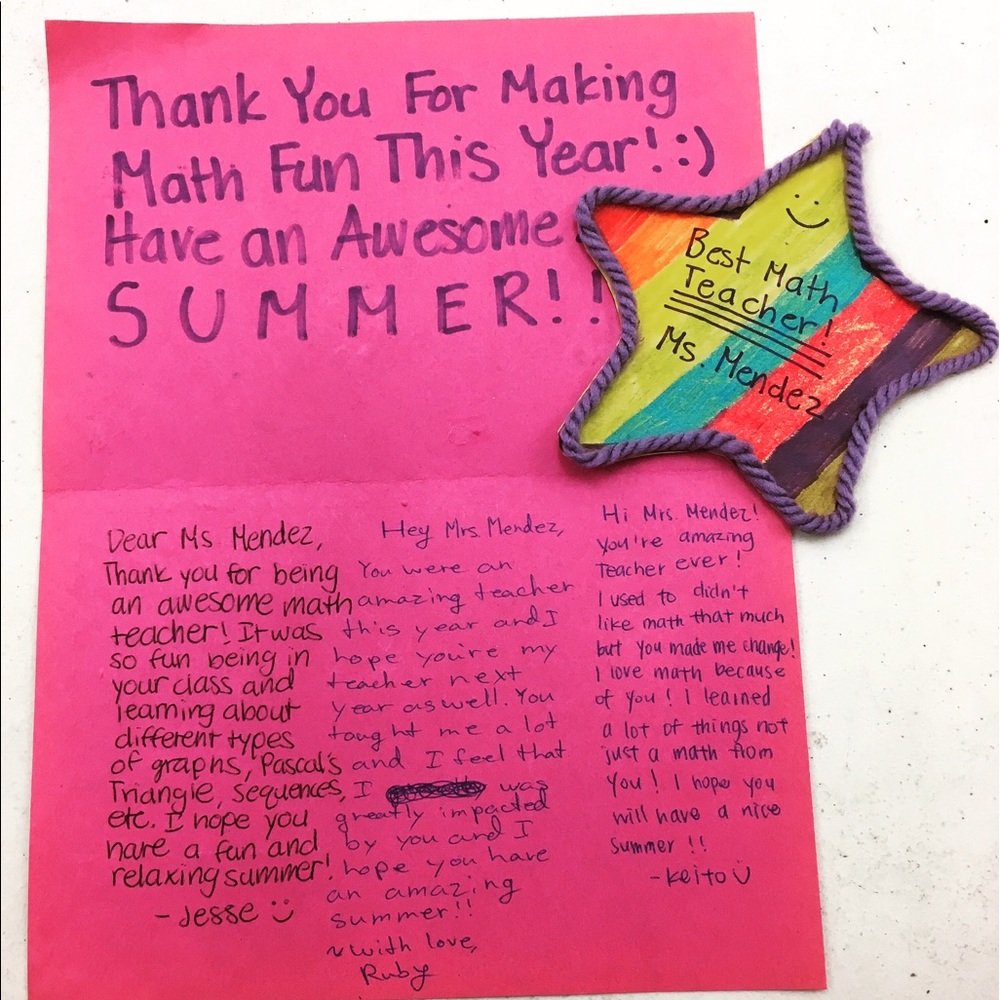 Thank You For Making
Math Fun This Year! :)
Have an Awesome
SUMMER!!
Best Math
Teacher!
Ms. Mendez
Dear Ms Mendez,
Thank you for being
an awesome math
teacher! It was
so fun being in
your class and
learning about
different types
of graphs, Pascal's
Triangle, sequences,
etc. I hope you
have a fun and
relaxing summer!
- Jesse
Hey Mrs. Mendez,
You were an
amazing teacher
this year and I
hope you're my
teacher next
year as well. You
taught me a lot
and I feel that
I was
greatly impacted
by you and I
hope you have
an amazing
summer!!
~with love,
Ruby
Hi Mrs. Mendez!
You're amazing
Teacher ever!
I used to didn't
like math that much
but you made me change!
I love math because
of you! I learned
a lot of things not
just a math from
You! I hope you
will have a nice
summer!!
- Keito